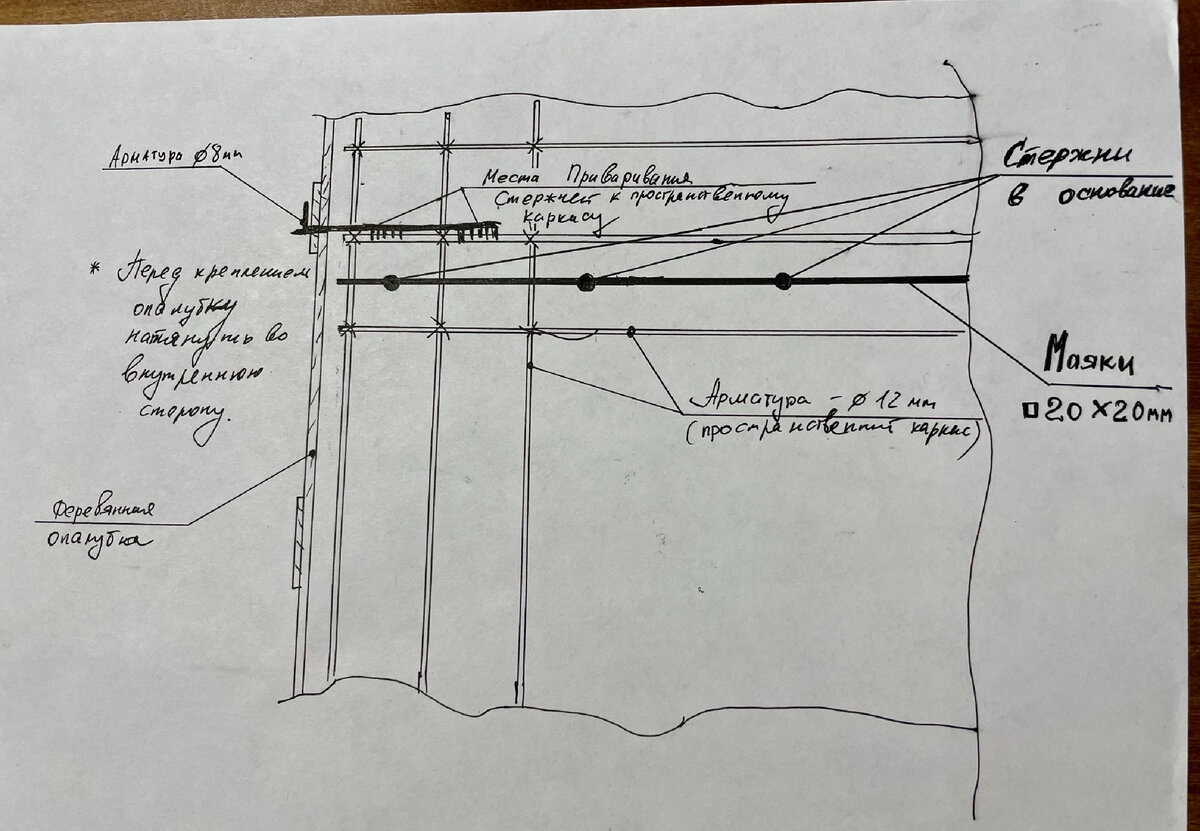 Арматура Ø8мм
Места Приваривания
Стержней к пространственному
каркасу
Стержни
в основание
* Перед креплением
опалубку
натянуть во
внутреннюю
сторону.
Маяки
□ 20×20мм
Арматура – Ø 12 мм
(пространственный каркас)
Деревянная
опалубка